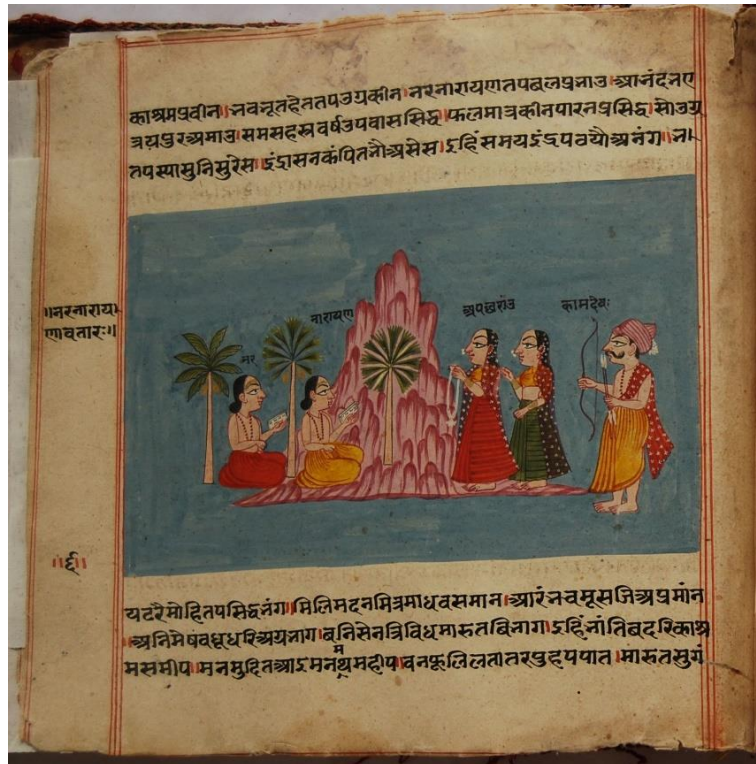 काश्रमप्रवीन ।नवनूतहेततपउग्रकीन ।नरनारायणतपबलप्रभाउ ।आनंदनए
त्रयपुरअमाउ ।समसहस्रवर्षउपवाससिद्ध ।फलमात्रकीनपारनप्रसिद्ध ।सोउग्र
तपस्यासुनिसुरेस ।इंद्रासनकंपितभौअसेस ।इहिंसमयइंद्रपठयौअनंग ।ना
॥नरनाराय
णावतारः॥
नर
नारायण
अपछरांउ
कामदेवः
॥६॥
यटरैमोहितपसिद्धनंग ।मिलिमदनमित्रमाधवसमान ।आरंभचमूसजिअप्रमांन
।अनिमेषवधूधरिअग्रभाग ।बनिसेनत्रिविधमारुतबिभाग ।इहिंभांतिबदरिकाश्र
मसमीप ।मनमुदितआइमनथमहीप ।वनफूलिलतातरपुहपपात ।मारुतसुगं
म